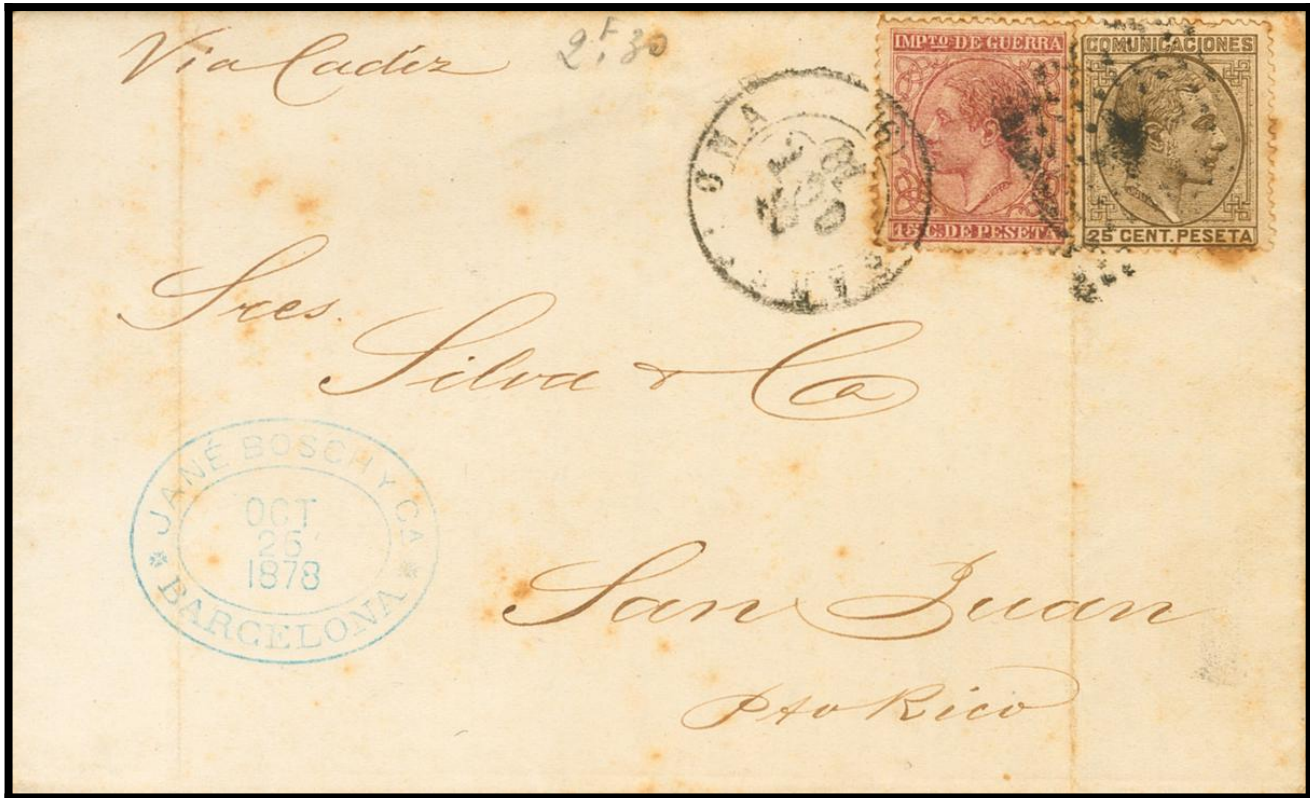 Via Cadiz
2F,30
IMPTO DE GUERRA
15 C. DE PESETA
COMUNICACIONES
25 CENT. PESETA
Sres.
Silva & Ca
JANÉ BOSCH Y CA
OCT
25
1878
BARCELONA
San Juan
Pto Rico